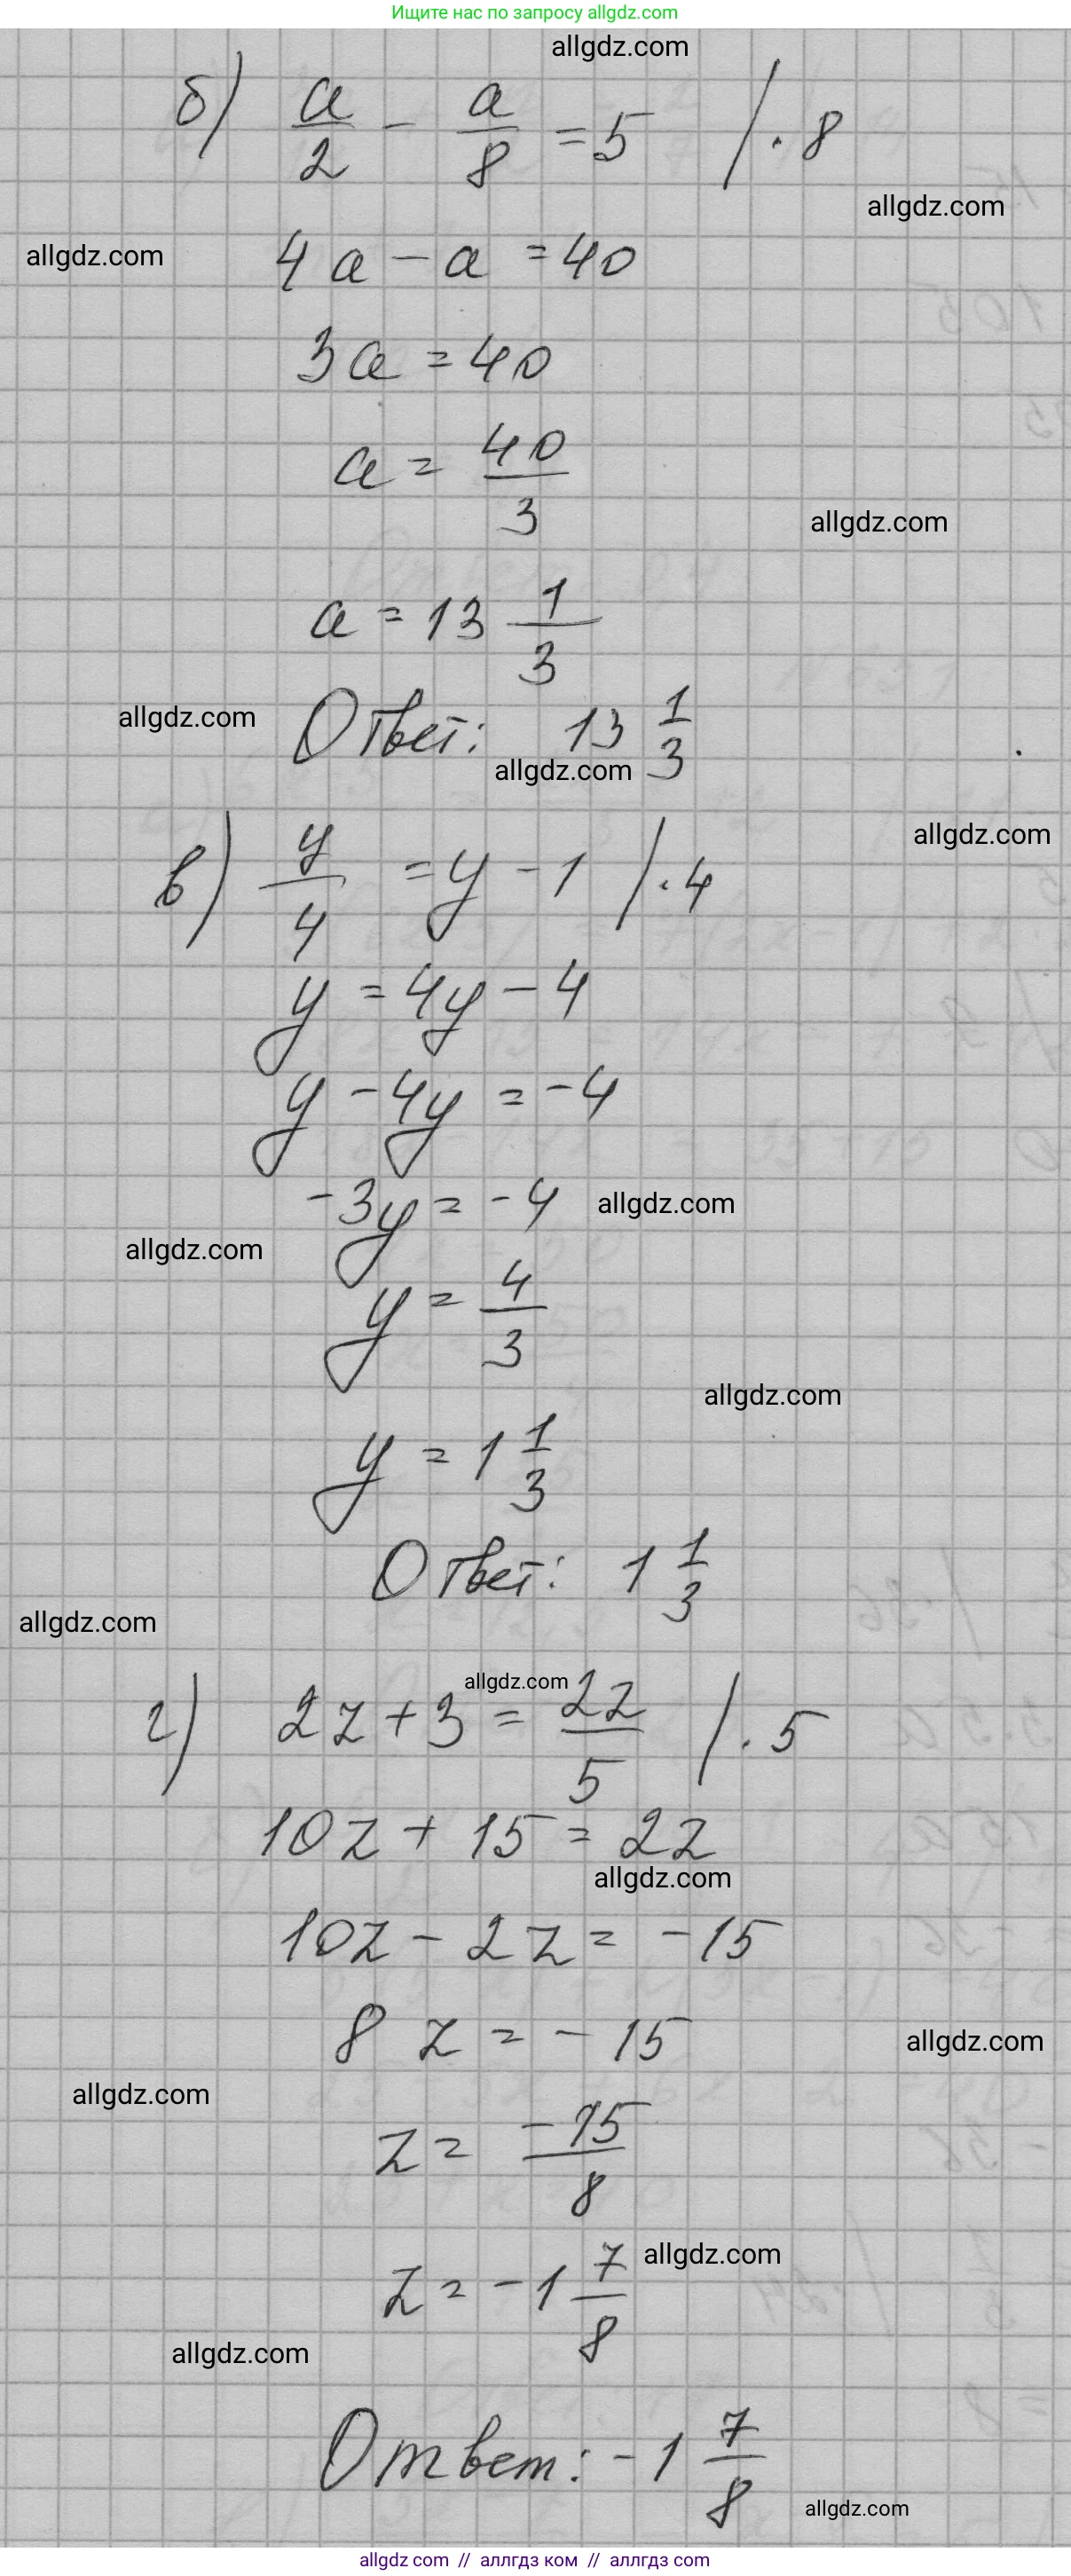 Ищите нас по запросу allgdz.com
allgdz.com
б) a/2 - a/8 = 5 /·8
allgdz.com
allgdz.com
4a - a = 40
3a = 40
a = 40/3
allgdz.com
a = 13 1/3
allgdz.com
Ответ: 13 1/3
allgdz.com
allgdz.com
в) y/4 = y - 1 /·4
y = 4y - 4
y - 4y = -4
-3y = -4
allgdz.com
allgdz.com
y = 4/3
allgdz.com
y = 1 1/3
Ответ: 1 1/3
allgdz.com
allgdz.com
г) 2z + 3 = 2z/5 /·5
10z + 15 = 2z
allgdz.com
10z - 2z = -15
8z = -15
allgdz.com
allgdz.com
z = -15/8
allgdz.com
z = -1 7/8
allgdz.com
Ответ: -1 7/8
allgdz.com
allgdz.com // аллгдз ком // аллгдз com